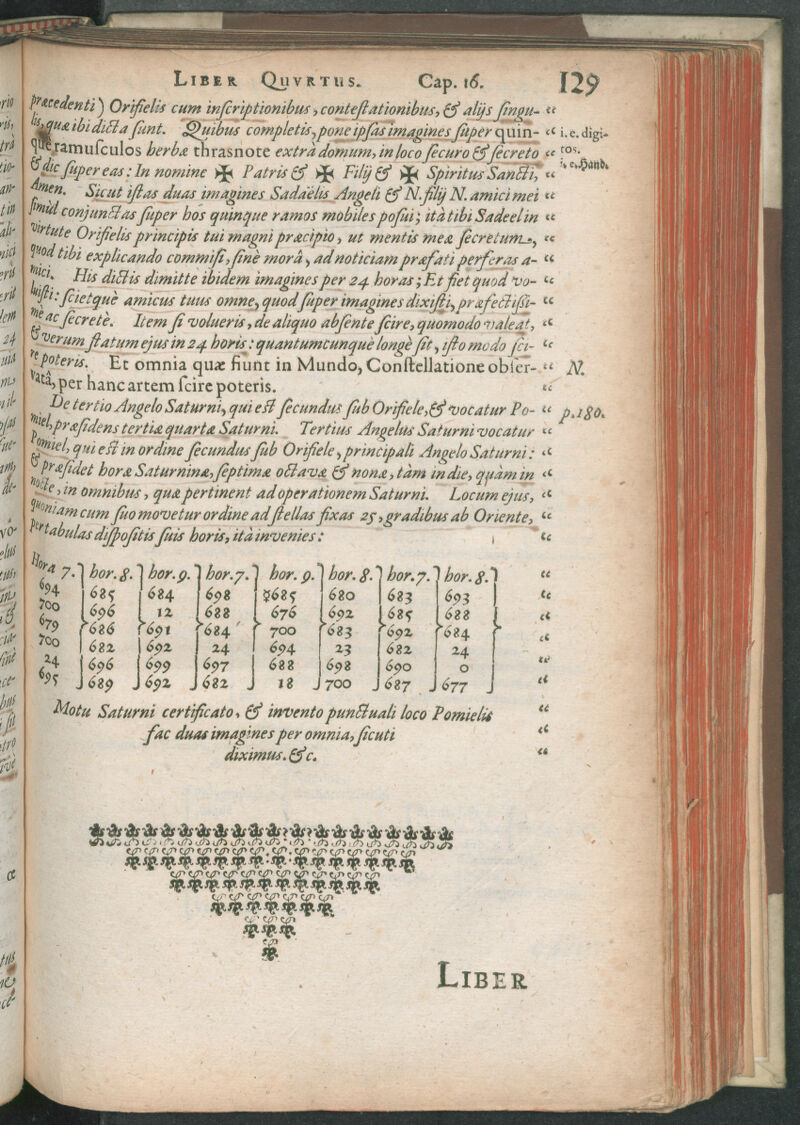 LIBER QUVRTUS. Cap. 16. 129
præcedenti) Orifielis cum inscriptionibus, contestationibus, & alijs singu-
lis, quæ ibi dicta sunt. Quibus completis, pone ipsas imagines super quin- i.e. digi-
que ramusculos herbæ thrasnote extrà domum, in loco securo & secreto tos.
& dic super eas: In nomine ✠ Patris & ✠ Filij & ✠ Spiritus Sancti, i.e. Hand.
Amen. Sicut istas duas imagines Sadaëlis Angeli & N. filij N. amici mei
simul conjunctas super hos quinque ramos mobiles posui; ità tibi Sadeel in
virtute Orifielis principis tui magni præcipio, ut mentis meæ secretum,
quod tibi explicando commisi, sinè morâ, ad noticiam præfati perferas a-
mici. His dictis dimitte ibidem imagines per 24 horas; Et fiet quod vo-
luisti: scietquè amicus tuus omne, quod super imagines dixisti, præfectissi-
mè ac secretè. Item si volueris, de aliquo absente scire, quomodo valeat,
& verum statum ejus in 24 horis: quantumcunquè longè sit, isto modo sci-
re poteris. Et omnia quæ fiunt in Mundo, Constellatione obser- N.
vatâ, per hanc artem scire poteris.
De tertio Angelo Saturni, qui est secundus sub Orifiele, & vocatur Po- p. 180.
miel, præsidens tertia quarta Saturni. Tertius Angelus Saturni vocatur
Pomiel, qui est in ordine secundus sub Orifiele, principali Angelo Saturni:
& præsidet horæ Saturninæ, septimæ octavæ & nonæ, tàm in die, quàm in
nocte, in omnibus, quæ pertinent ad operationem Saturni. Locum ejus,
quoniam cum suo movetur ordine ad stellas fixas 25, gradibus ab Oriente,
per tabulas dispositis suis horis, ità invenies:
Hora 7. hor. 8. hor. 9. hor. 7. hor. 9. hor. 8. hor. 7. hor. 8.
694 685 684 698 685 680 683 693
700 696 12 688 676 692 685 688
679 686 691 684 700 683 692 684
700 682 692 24 694 23 682 24
24 696 699 697 688 698 690 0
695 689 692 682 18 700 687 677
Motu Saturni certificato, & invento punctuali loco Pomielis
fac duas imagines per omnia, sicuti
diximus. &c.
LIBER